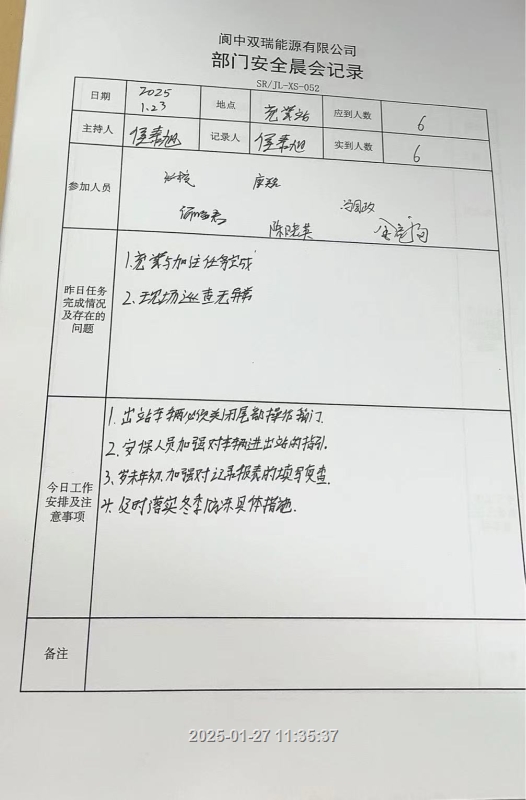 阆中双瑞能源有限公司
部门安全晨会记录
SR/JL-XS-052
日期 2025 1.23 地点 充装站 应到人数 6
主持人 侯素旭 记录人 侯素旭 实到人数 6
参加人员
陈晓英
昨日任务完成情况及存在的问题
1.充装与加注任务完成
2.现场巡查无异常
今日工作安排及注意事项
1.出站车辆必须关闭尾部操作箱门.
2.安保人员加强对车辆进出站的指引.
3.岁末年初,加强对记录报表的填写复查.
4.及时落实冬季防冻具体措施.
备注
2025-01-27 11:35:37